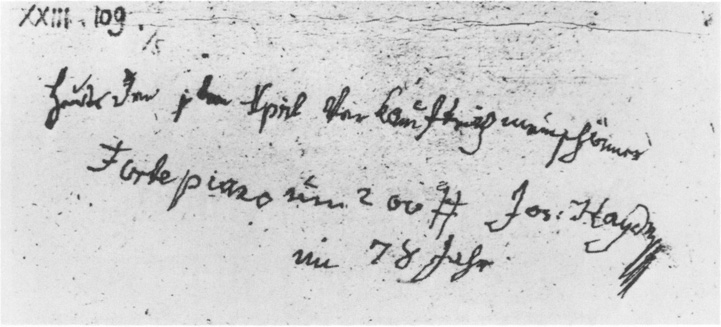 XXIII. 109.
Heute den 1ten April verkaufte ich mein schönes
Fortepiano um 200 # Jos: Haydn
im 78 Jahr